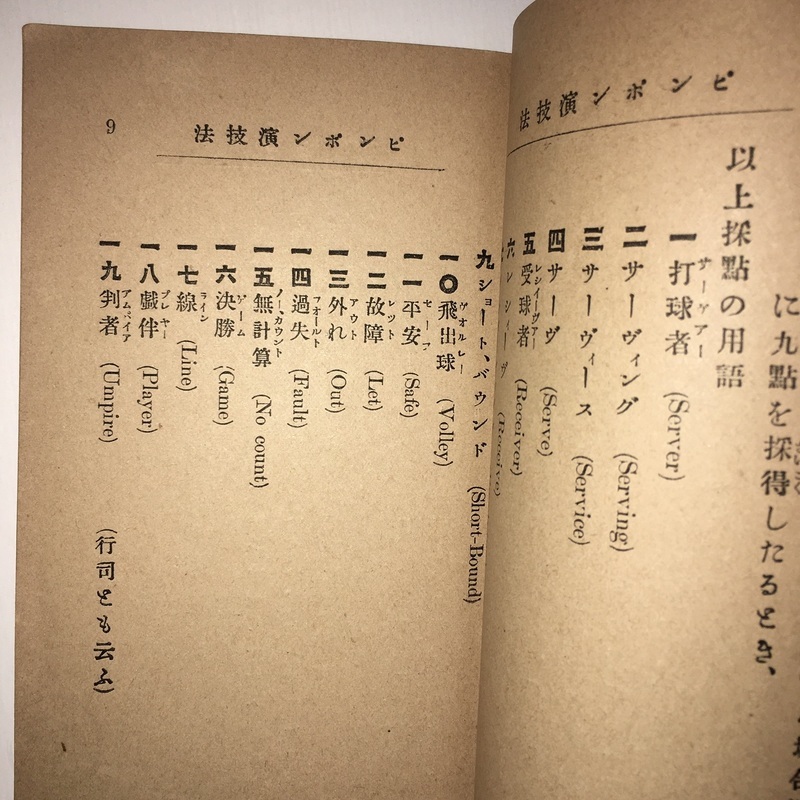 ピンポン演技法
に九點を採得したるとき、
以上採點の用語
サーヴアー
一 打球者 (Server)
二 サーヴィング (Serving)
三 サーヴィース (Service)
四 サーヴ (Serve)
レシイーヴアー
五 受球者 (Receiver)
六 レシィーヴ (Receive)
ピンポン演技法
9
九 ショート、バウンド (Short-Bound)
ヴオルレー
一〇 飛出球 (Volley)
セーフ
一一 平安 (Safe)
レツト
一二 故障 (Let)
アウト
一三 外れ (Out)
フオールト
一四 過失 (Fault)
ノー、カウント
一五 無計算 (No count)
ゲーム
一六 決勝 (Game)
ライン
一七 線 (Line)
プレヤー
一八 戯伴 (Player)
アムパイア
一九 判者 (Umpire) (行司とも云ふ)